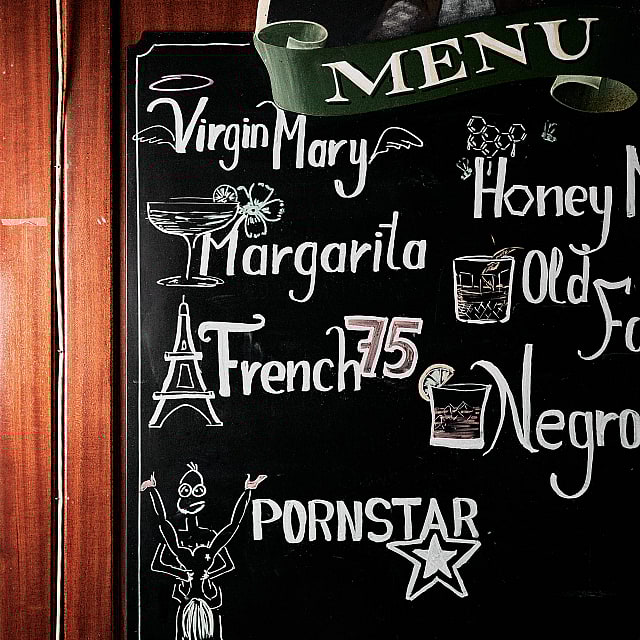 MENU
Virgin Mary
Margarita
French 75
PORNSTAR
Honey
Old
Negro